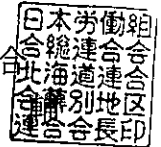 合
日本労働組
合総連合会
北海道連合
別地区
連会会長印